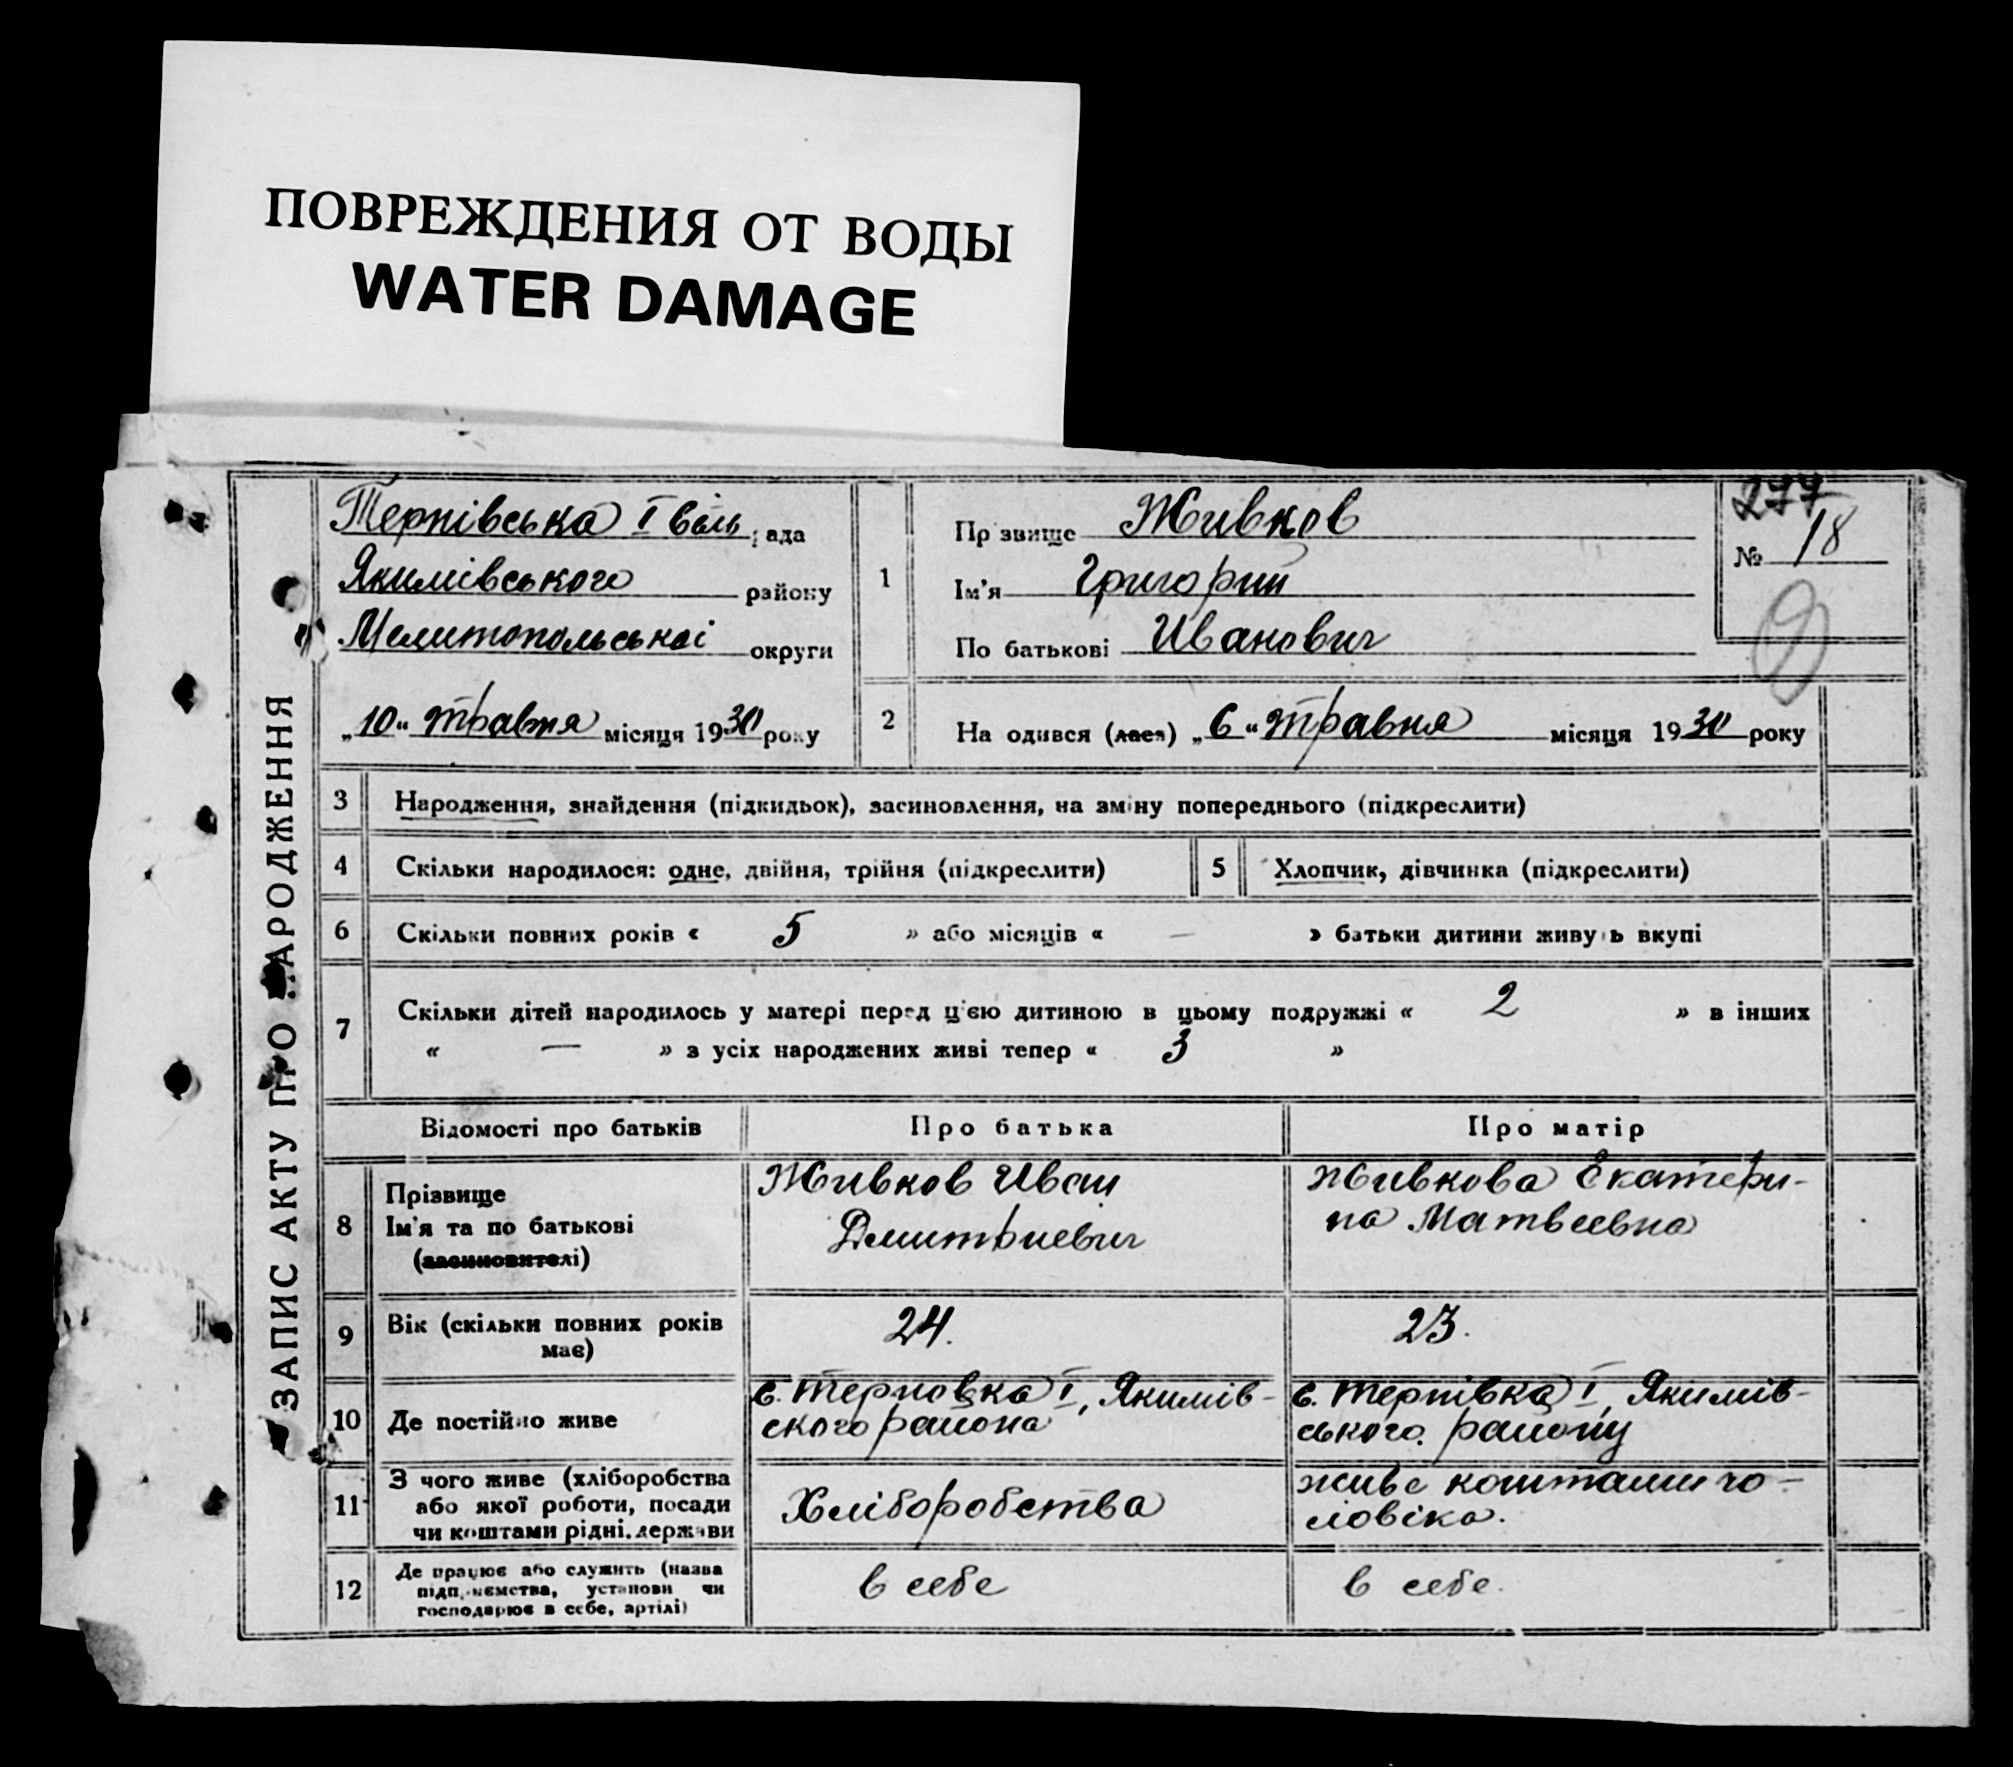 ПОВРЕЖДЕНИЯ ОТ ВОДЫ
WATER DAMAGE
ЗАПИС АКТУ ПРО НАРОДЖЕННЯ
Терпівська І сіль рада
Якимівського району
Мелитопольскоі округи
„10“ травня місяця 1930 року
1
Прізвище Живков
Ім'я Григорий
По батькові Иванович
277
№ 18
2 На одився (лася) „6“ травня місяця 1930 року
3 Народження, знайдення (підкидьок), засиновлення, на зміну попереднього (підкреслити)
4 Скільки народилося: одне, двійня, трійня (підкреслити)
5 Хлопчик, дівчинка (підкреслити)
6 Скільки повних років « 5 » або місяців « — » батьки дитини живуть вкупі
7 Скільки дітей народилось у матері перед цією дитиною в цьому подружжі « 2 » в інших
« — » з усіх народжених живі тепер « 3 »
Відомості про батьків Про батька Про матір
8 Прізвище
Ім'я та по батькові
(засиновителі)
Живков Иван
Дмитриевич
Живкова Екатери-
на Матвеевна
9 Вік (скільки повних років
має)
24.
23.
10 Де постійно живе
с. Терповка І, Якимів-
ского района
с. Терпівка І, Якимів-
ського району
11 З чого живе (хліборобства
або якої роботи, посади
чи коштами рідні, держави
Хліборобства
живе коштами чо-
ловіка.
12 Де працює або служить (назва
підприємства, установи чи
господарює в себе, артілі)
в себе
в себе.